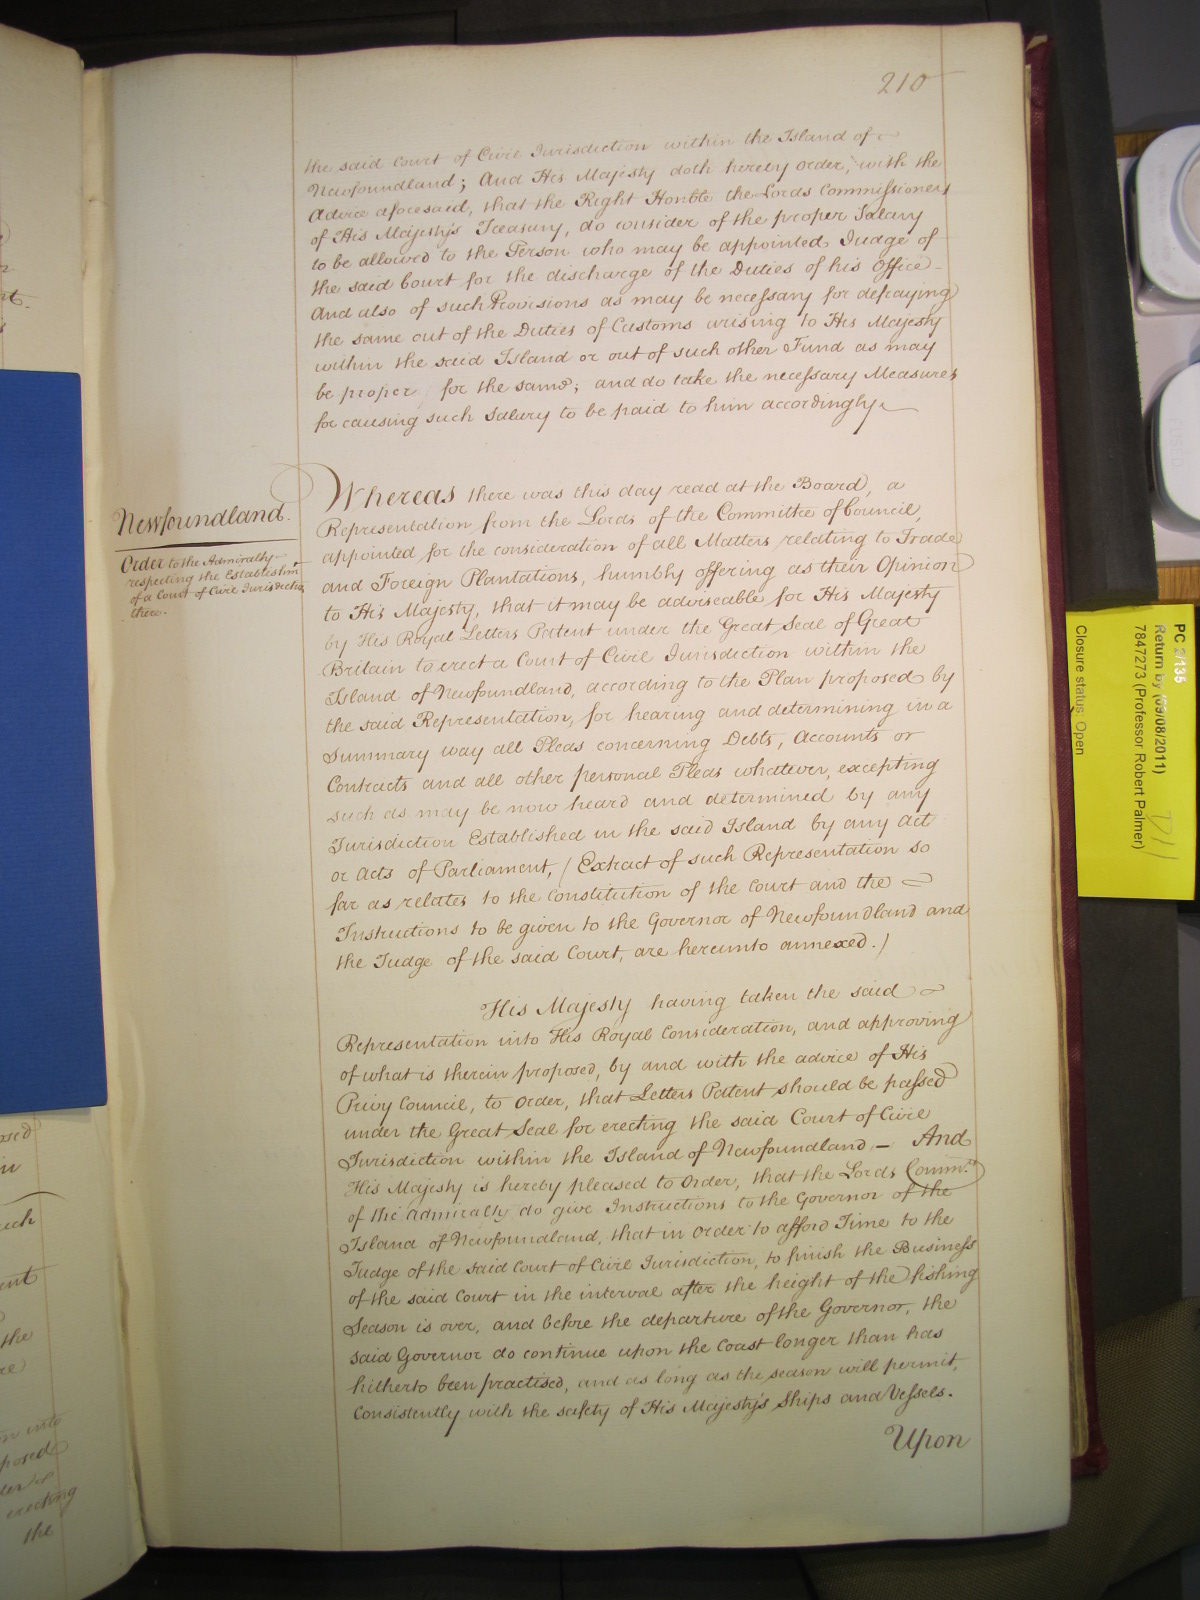 210
the said Court of Civil Jurisdiction within the Island of
Newfoundland; And His Majesty doth hereby order, with the
Advice aforesaid, that the Right Honble the Lords Commissioners
of His Majesty's Treasury, do consider of the proper Salary
to be allowed to the Person who may be appointed Judge of
the said Court for the discharge of the Duties of his Office
And also of such Provisions as may be necessary for defraying
the same out of the Duties of Customs arising to His Majesty
within the said Island or out of such other Fund as may
be proper for the same; and do take the necessary Measures
for causing such Salary to be paid to him accordingly
Newfoundland.
Order to the Admiralty
respecting the Establishmt
of a Court of Civil Jurisdiction
there.
Whereas there was this day read at the Board, a
Representation from the Lords of the Committee of Council,
appointed for the consideration of all Matters relating to Trade
and Foreign Plantations, humbly offering as their Opinion
to His Majesty, that it may be adviseable for His Majesty
by His Royal Letters Patent under the Great Seal of Great
Britain to erect a Court of Civil Jurisdiction within the
Island of Newfoundland, according to the Plan proposed by
the said Representation, for hearing and determining in a
Summary way all Pleas concerning Debts, Accounts or
Contracts and all other personal Pleas whatever, excepting
such as may be now heard and determined by any
Jurisdiction Established in the said Island by any Act
or Acts of Parliament, / Extract of such Representation so
far as relates to the Constitution of the Court and the
Instructions to be given to the Governor of Newfoundland and
the Judge of the said Court, are hereunto annexed. /
His Majesty having taken the said
Representation into His Royal Consideration, and approving
of what is therein proposed, by and with the advice of His
Privy Council, to order, that Letters Patent should be passed
under the Great Seal for erecting the said Court of Civil
Jurisdiction within the Island of Newfoundland — And
His Majesty is hereby pleased to Order, that the Lords Commrs
of the Admiralty do give Instructions to the Governor of the
Island of Newfoundland, that in Order to afford Time to the
Judge of the said Court of Civil Jurisdiction, to finish the Business
of the said Court in the interval after the height of the fishing
Season is over, and before the departure of the Governor, the
said Governor do continue upon the Coast longer than has
hitherto been practised, and as long as the season will permit,
Consistently with the safety of His Majesty's Ships and Vessels.
Upon
PC 2/135
Return by (09/08/2011)
7847273 (Professor Robert Palmer)
Closure status: Open
the
posed
erecting
the